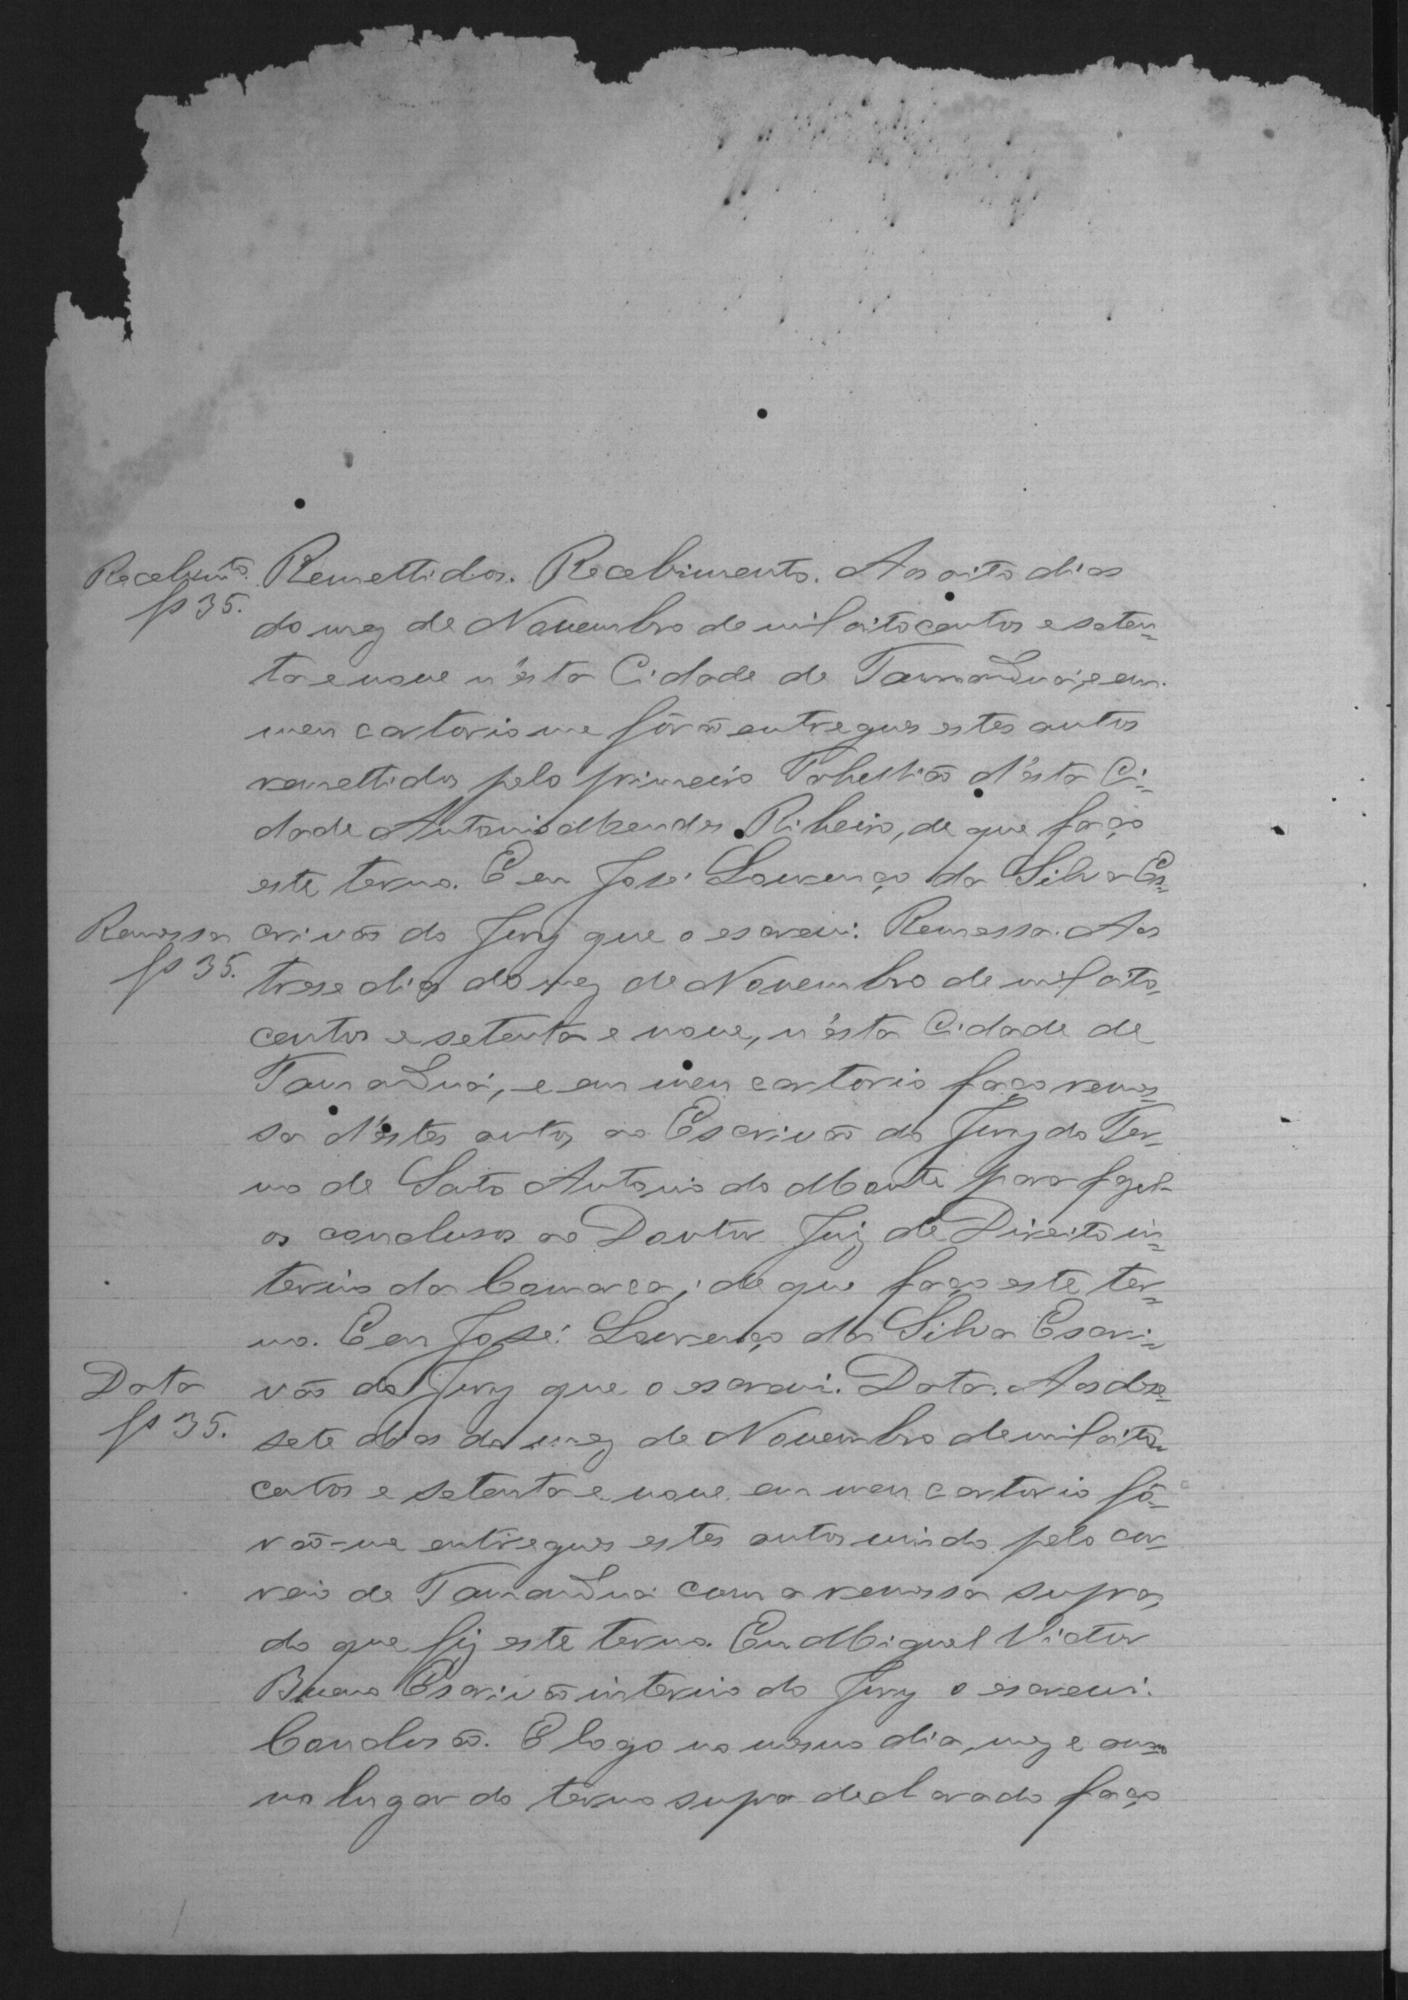 Recebimto. Remettidos. Recebimento. Aos oito dias
fs 35.
do mez de Novembro de mil oitocentos e seten=
ta e nove n'ésta Cidade de Tamanduá, e em
meu cartorio me fôrão entregues estes autos
remettidos pelo primeiro Tabellião d'ésta Ci=
dade Antonio Mendes Ribeiro, de que faço
este termo. E eu José Lourenço da Silva Es=
Remessa crivão do Jury que o escrevi. Remessa. Aos
fs 35.
trese dias do mez de Novembro de mil oito=
centos e setenta e nove, n'ésta Cidade de
Tamanduá, e em meu cartorio faço remes=
sa d'éstes autos ao Escrivão do Jury do Ter=
mo de Santo Antonio do Monte para fazel-
os conclusos ao Doutor Juiz de Direito in=
terino da Comarca; de que faço este ter=
mo. E eu José Lourenço da Silva Escri=
Data vão do Jury que o escrevi. Data. Aos dese=
fs 35.
sete dias do mez de Novembro de mil oito=
centos e setenta e nove em meu cartorio fô=
rão-me entregues estes autos vindo pelo cor=
reio de Tamanduá com a remessa supra,
do que fiz este termo. Eu Miguel Victor
Bueno Escrivão interino do Jury o escrevi.
Conclusão. E logo no mesmo dia, mez e anno
no lugar do termo supra declarado faço